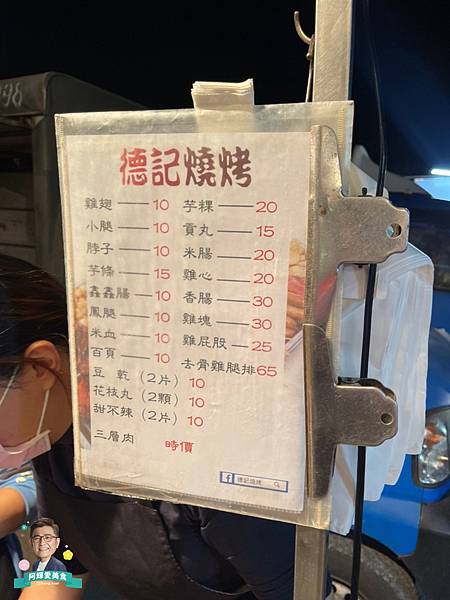 德記燒烤
雞翅 — 10
小腿 — 10
脖子 — 10
芋條 — 15
鑫鑫腸 — 10
鳳腿 — 10
米血 — 10
百頁 — 10
豆 乾 (2片) 10
花枝丸 (2顆) 10
甜不辣 (2片) 10
三層肉 時價
芋粿 — 20
貢丸 — 15
米腸 — 20
雞心 — 20
香腸 — 30
雞塊 — 30
雞屁股 — 25
去骨雞腿排65
f 德記燒烤
阿輝愛美食